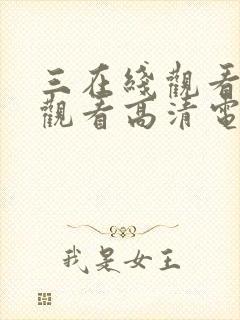 三在綫觀看
觀看高清電
我是女王